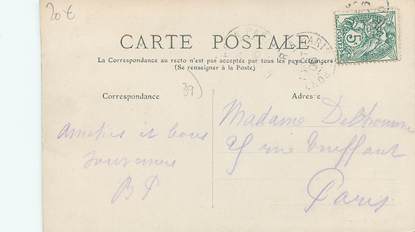 20 €
CARTE POSTALE
La Correspondance au recto n'est pas acceptée par tous les pays étrangers
(Se renseigner à la Poste)
39
Correspondance
Adresse
5
Madame Delhomme
Amitiés et bons
souvenirs
25 rue Truffaut
BP
Paris